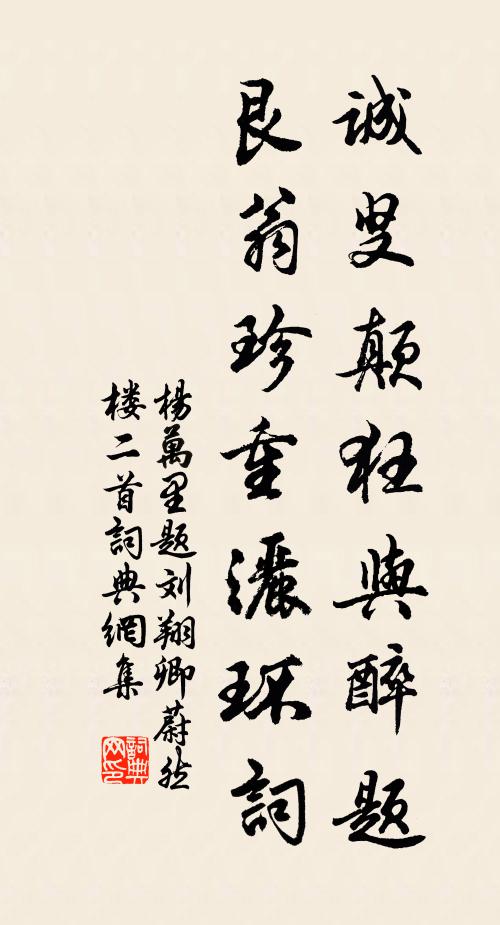 诚叟颠狂与醉题
艮翁珍重灑环詞
楊萬里题刘翔卿蔚然
楼二首詞典網集
詞典
网印